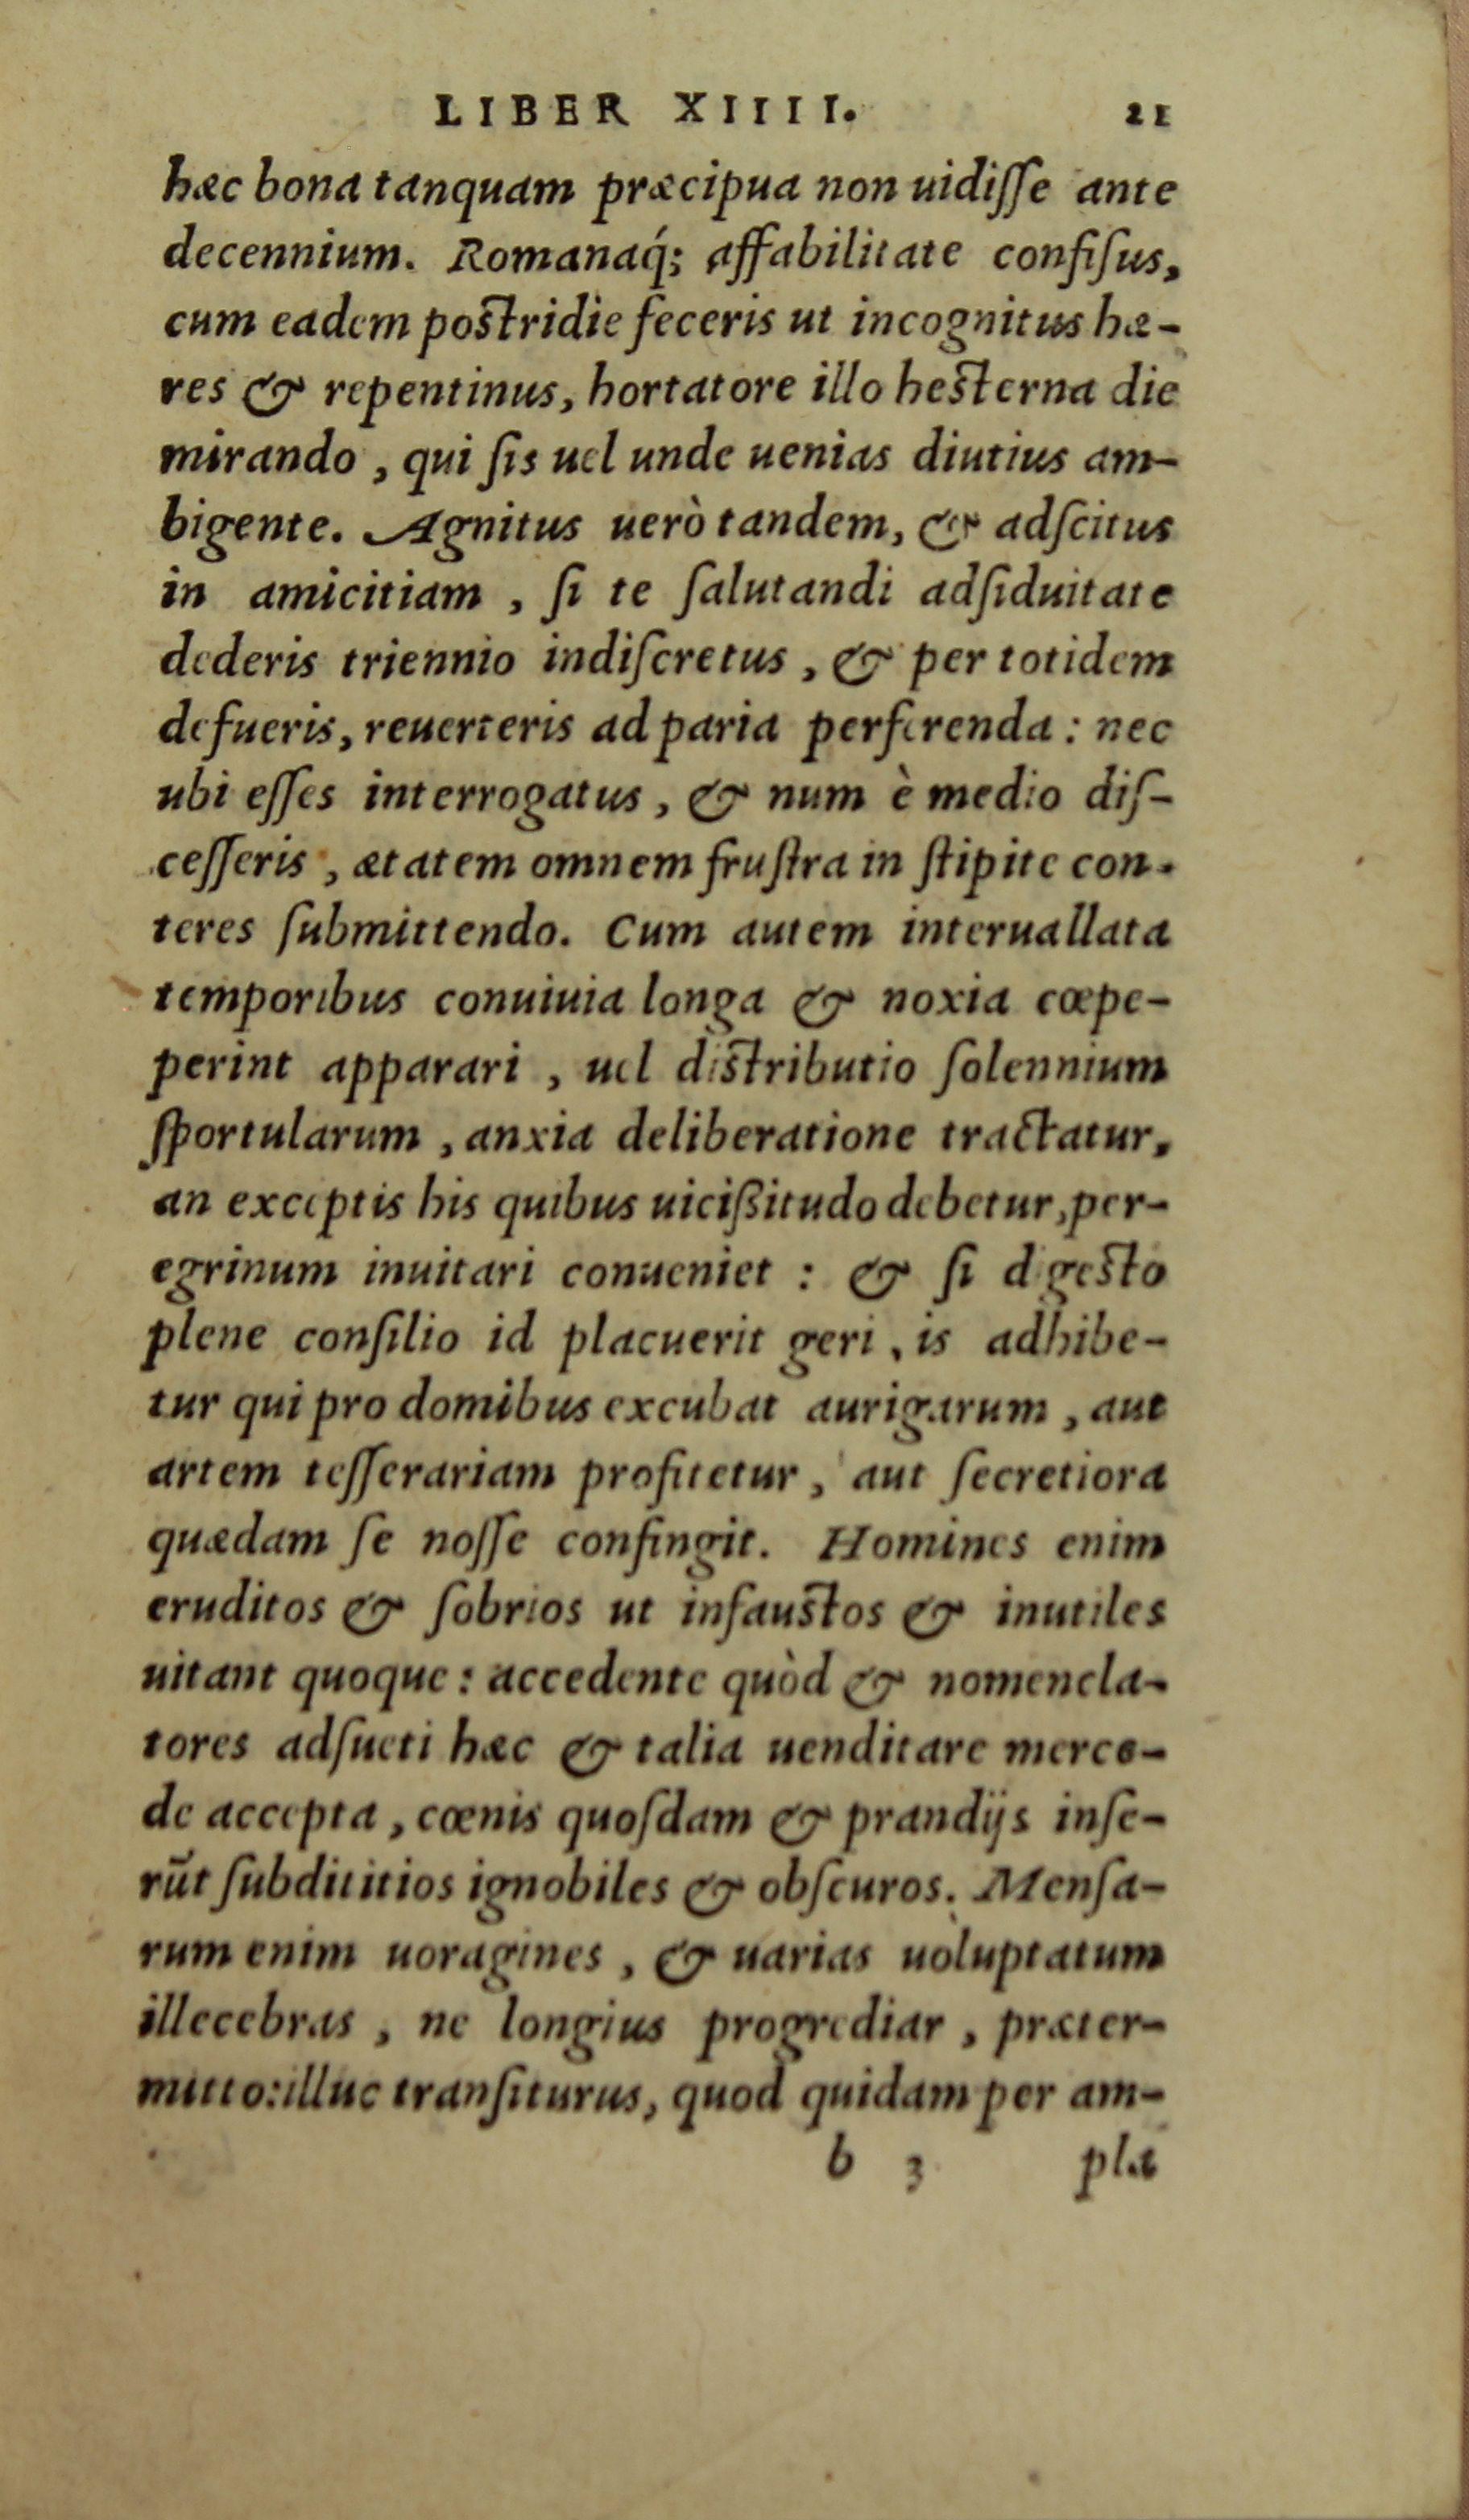 LIBER XIIII. 21
hæc bona tanquam præcipua non uidiſſe ante
decennium. Romanaq́; affabilitate confiſus,
cum eadem poſtridie feceris ut incognitus hæ-
res & repentinus, hortatore illo heſterna die
mirando, qui ſis uel unde uenias diutius am-
bigente. Agnitus uerò tandem, & adſcitus
in amicitiam, ſi te ſalutandi adſiduitate
dederis triennio indiſcretus, & per totidem
defueris, reuerteris ad paria perferenda: nec
ubi eſſes interrogatus, & num è medio diſ-
ceſſeris, ætatem omnem fruſtra in ſtipite con-
teres ſubmittendo. Cum autem interuallata
temporibus conuiuia longa & noxia cœpe-
perint apparari, uel diſtributio ſolennium
ſportularum, anxia deliberatione tractatur,
an exceptis his quibus uicißitudo debetur, per-
egrinum inuitari conueniet: & ſi digeſto
plene conſilio id placuerit geri, is adhibe-
tur qui pro domibus excubat aurigarum, aut
artem teſſerariam profitetur, aut ſecretiora
quædam ſe noſſe confingit. Homines enim
eruditos & ſobrios ut infauſtos & inutiles
uitant quoque: accedente quòd & nomencla-
tores adſueti hæc & talia uenditare merce-
de accepta, cœnis quoſdam & prandijs inſe-
rūt ſubdititios ignobiles & obſcuros. Menſa-
rum enim uoragines, & uarias uoluptatum
illecebras, ne longius progrediar, præter-
mitto: illuc tranſiturus, quod quidam per am-
b 3 pla